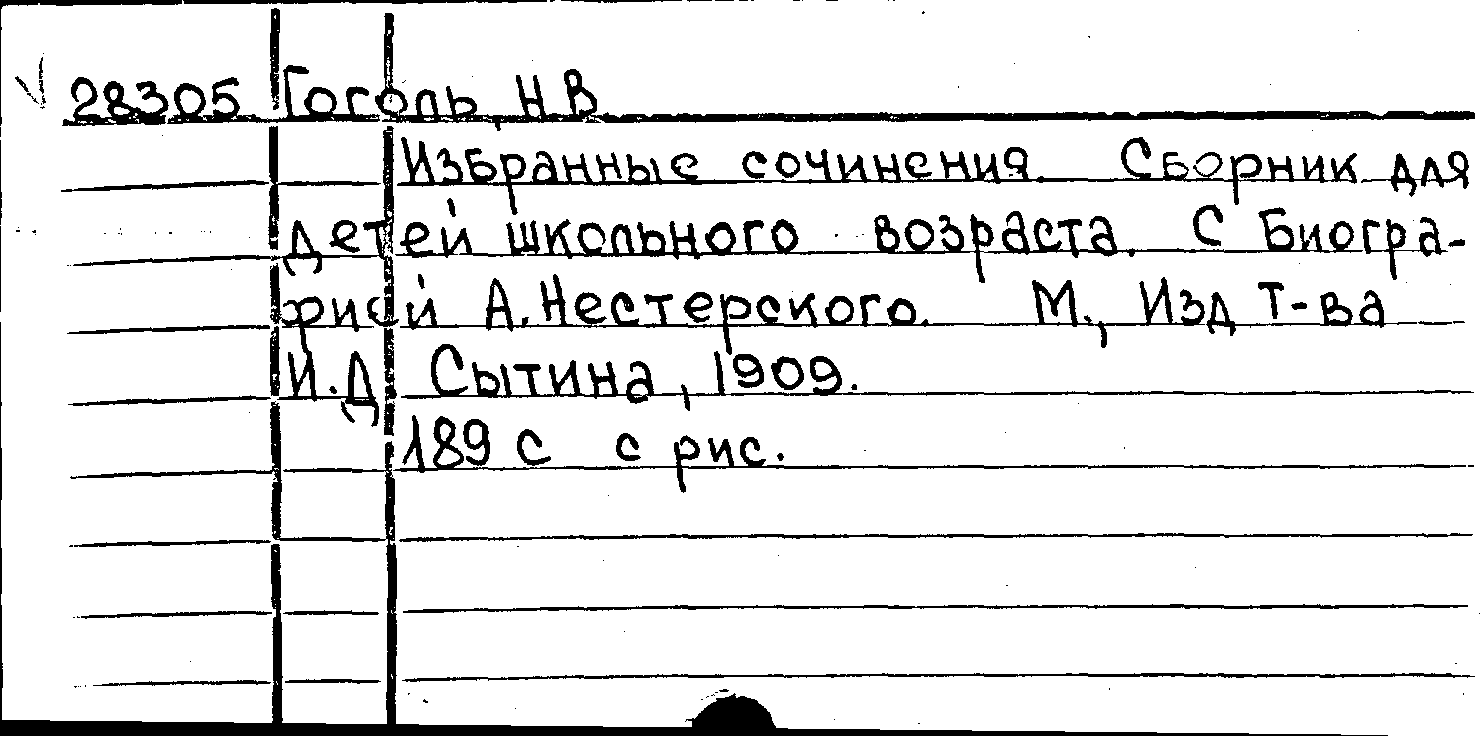 28305 Гоголь, Н.В.
Избранные сочинения. Сборник для
детей школьного возраста. С Биогра-
фией А.Нестерского. М., Изд Т-ва
И.Д. Сытина, 1909.
189 с с рис.